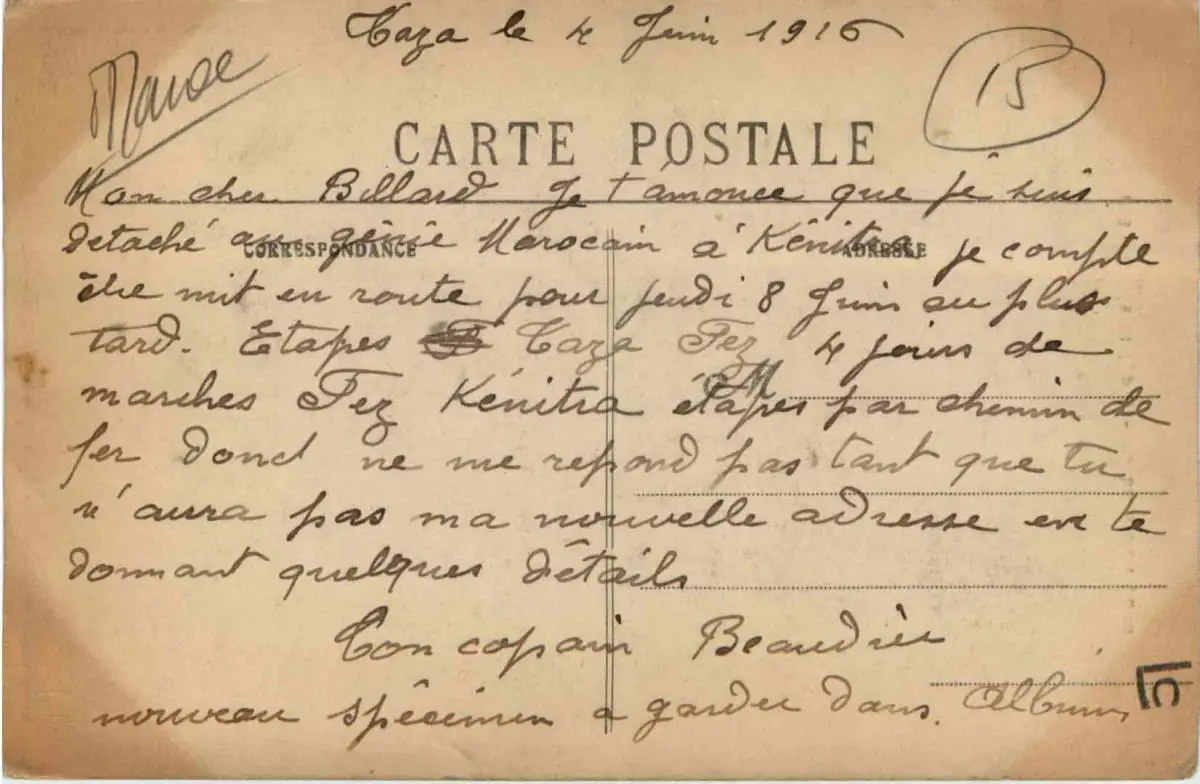 Taza le 4 Juin 1916
Maroc
15
CARTE POSTALE
Mon cher Billard Je t'anonce que je suis
detaché au génie Marocain à Kénitra je compte
CORRESPONDANCE
ADRESSE
être mit en route pour jeudi 8 Juin au plus
tard. Etapes Taza Fez 4 jours de
marches Fez Kénitra étapes par chemin de
fer donc ne me repond pas tant que tu
n'aura pas ma nouvelle adresse en te
donnant quelques détails
Ton copain Beaudrier
nouveau spécimen a garder dans. Album